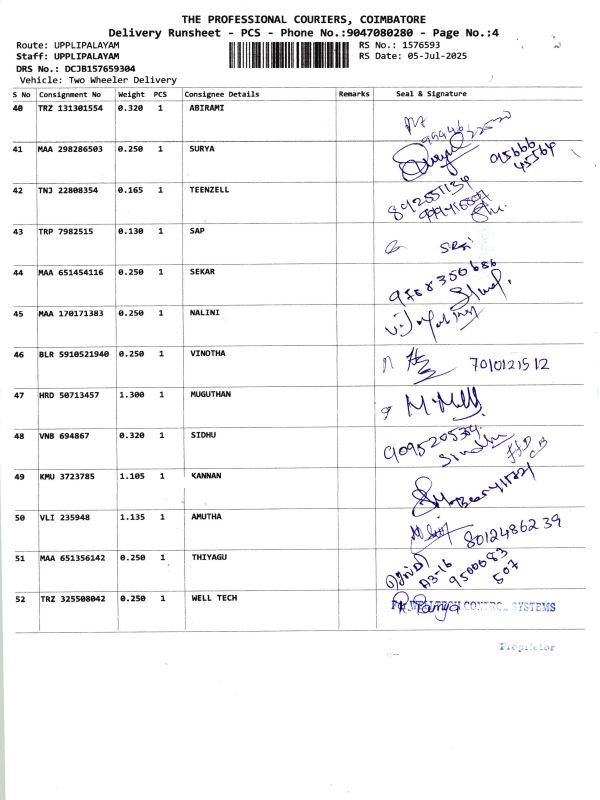 THE PROFESSIONAL COURIERS, COIMBATORE
Delivery Runsheet - PCS - Phone No.:9047080280 - Page No.:4
Route: UPPLIPALAYAM
RS No.: 1576593
Staff: UPPLIPALAYAM
RS Date: 05-Jul-2025
DRS No.: DCJB157659304
Vehicle: Two Wheeler Delivery
S No Consignment No Weight PCS Consignee Details Remarks Seal & Signature
40 TRZ 131301554 0.320 1 ABIRAMI
41 MAA 298286503 0.250 1 SURYA
95666
45564
42 TNJ 22808354 0.165 1 TEENZELL
43 TRP 7982515 0.130 1 SAP
44 MAA 651454116 0.250 1 SEKAR
9788350686
45 MAA 170171383 0.250 1 NALINI
46 BLR 5910521940 0.250 1 VINOTHA
7010121512
47 HRD 50713457 1.300 1 MUGUTHAN
48 VNB 694867 0.320 1 SIDHU
Sindhu
49 KMU 3723785 1.105 1 KANNAN
50 VLI 235948 1.135 1 AMUTHA
8012486239
51 MAA 651356142 0.250 1 THIYAGU
A3-16
9500083
507
52 TRZ 325508042 0.250 1 WELL TECH
For WELLTECH CONTROL SYSTEMS
Ramya
Proprietor